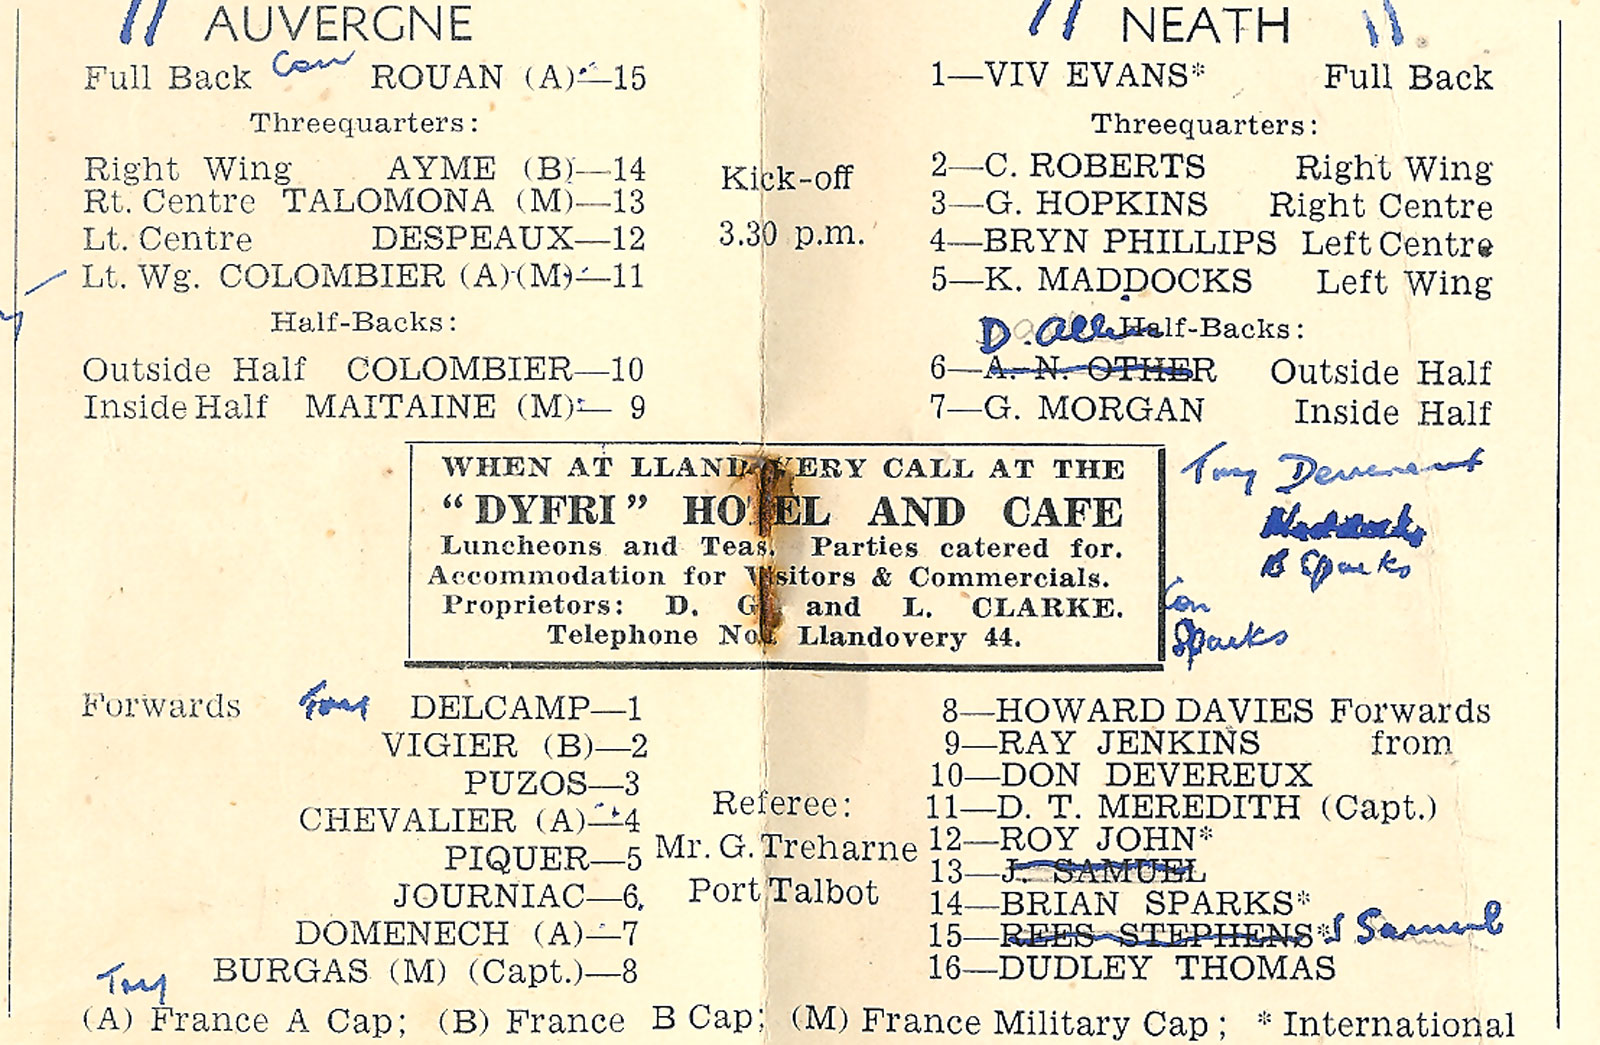 AUVERGNE
NEATH
Full Back Con ROUAN (A)—15
1—VIV EVANS* Full Back
Threequarters:
Threequarters:
Right Wing AYME (B)—14
2—C. ROBERTS Right Wing
Rt. Centre TALOMONA (M)—13
3—G. HOPKINS Right Centre
Lt. Centre DESPEAUX—12
4—BRYN PHILLIPS Left Centre
Lt. Wg. COLOMBIER (A) (M)—11
5—K. MADDOCKS Left Wing
Kick-off
3.30 p.m.
Half-Backs:
Half-Backs:
Outside Half COLOMBIER—10
6—A. N. OTHER Outside Half
Inside Half MAITAINE (M)— 9
7—G. MORGAN Inside Half
WHEN AT LLANDOVERY CALL AT THE
"DYFRI" HOTEL AND CAFE
Luncheons and Teas. Parties catered for.
Accommodation for Visitors & Commercials.
Proprietors: D. G. and L. CLARKE.
Telephone No. Llandovery 44.
Tony Devereux
Maddocks
B Sparks
Con
Sparks
Forwards Tony DELCAMP—1
VIGIER (B)—2
PUZOS—3
CHEVALIER (A)—4
PIQUER—5
JOURNIAC—6
DOMENECH (A)—7
Tony BURGAS (M) (Capt.)—8
Referee:
Mr. G. Treharne
Port Talbot
8—HOWARD DAVIES Forwards
9—RAY JENKINS from
10—DON DEVEREUX
11—D. T. MEREDITH (Capt.)
12—ROY JOHN*
13—J. SAMUEL
14—BRIAN SPARKS*
15—REES STEPHENS* J Samuel
16—DUDLEY THOMAS
(A) France A Cap; (B) France B Cap; (M) France Military Cap; * International